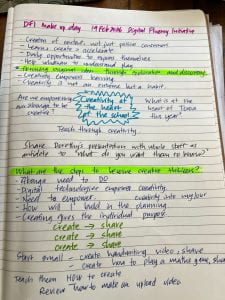 DFI make up day 19 Feb 2016 Digital Fluency Initiative
- Creators of content not just passive consumers
- Learners create = accelerate
- Daily opportunities to express themselves
- Help whānau to understand this
- Forming original ideas through exploration and discovery
- Creativity empowers learning
- Creativity is not an outcome but a habit.
Are we empowering our through to be
Creativity at the heart of the school
What is at the heart of
this year?
Teach through creativity.
Share Dorothy's presentations with whole staff as
antidote to "what do you want them to know?"
What are the steps to become creative thinkers?
- Always need to DO
- Digital technologies empower creativity.
- Need to empower creativity into my
- How will I build in the planning
- Creating gives the individual purpose.
create → share
create → share
create → share
Start small - create handwriting video, share
create how to play a maths game, share
Teach them HOW to create
Review how to make an upload video